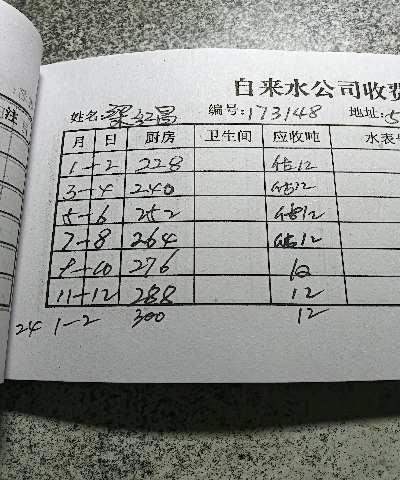 自来水公司收费
姓名: 梁红昌 编号: 173148 地址: 5
月 日 厨房 卫生间 应收吨 水表
1-2 228 估12
3-4 240 估12
5-6 252 估12
7-8 264 估12
9-10 276 12
11-12 288 12
24 1-2 300 12
注